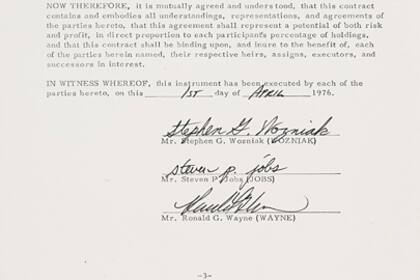 NOW THEREFORE, it is mutually agreed and understood, that this contract
contains and embodies all understandings, representations, and agreements
of the parties hereto, that this agreement shall represent a potential of both risk
and profit, in direct proportion to each participants percentage of holdings,
and that this contract shall be binding upon, and inure to the benefit of, each
of the parties herein named, their respective heirs, assigns, executors, and
successors in interest.
IN WITNESS WHEREOF, this instrument has been executed by each of the
parties hereto, on this 1ST day of APRIL 1976.
Stephen G. Wozniak
Mr. Stephen G. Wozniak (WOZNIAK)
steven p. jobs
Mr. Steven P. Jobs (JOBS)
Mr. Ronald G. Wayne (WAYNE)
-3-